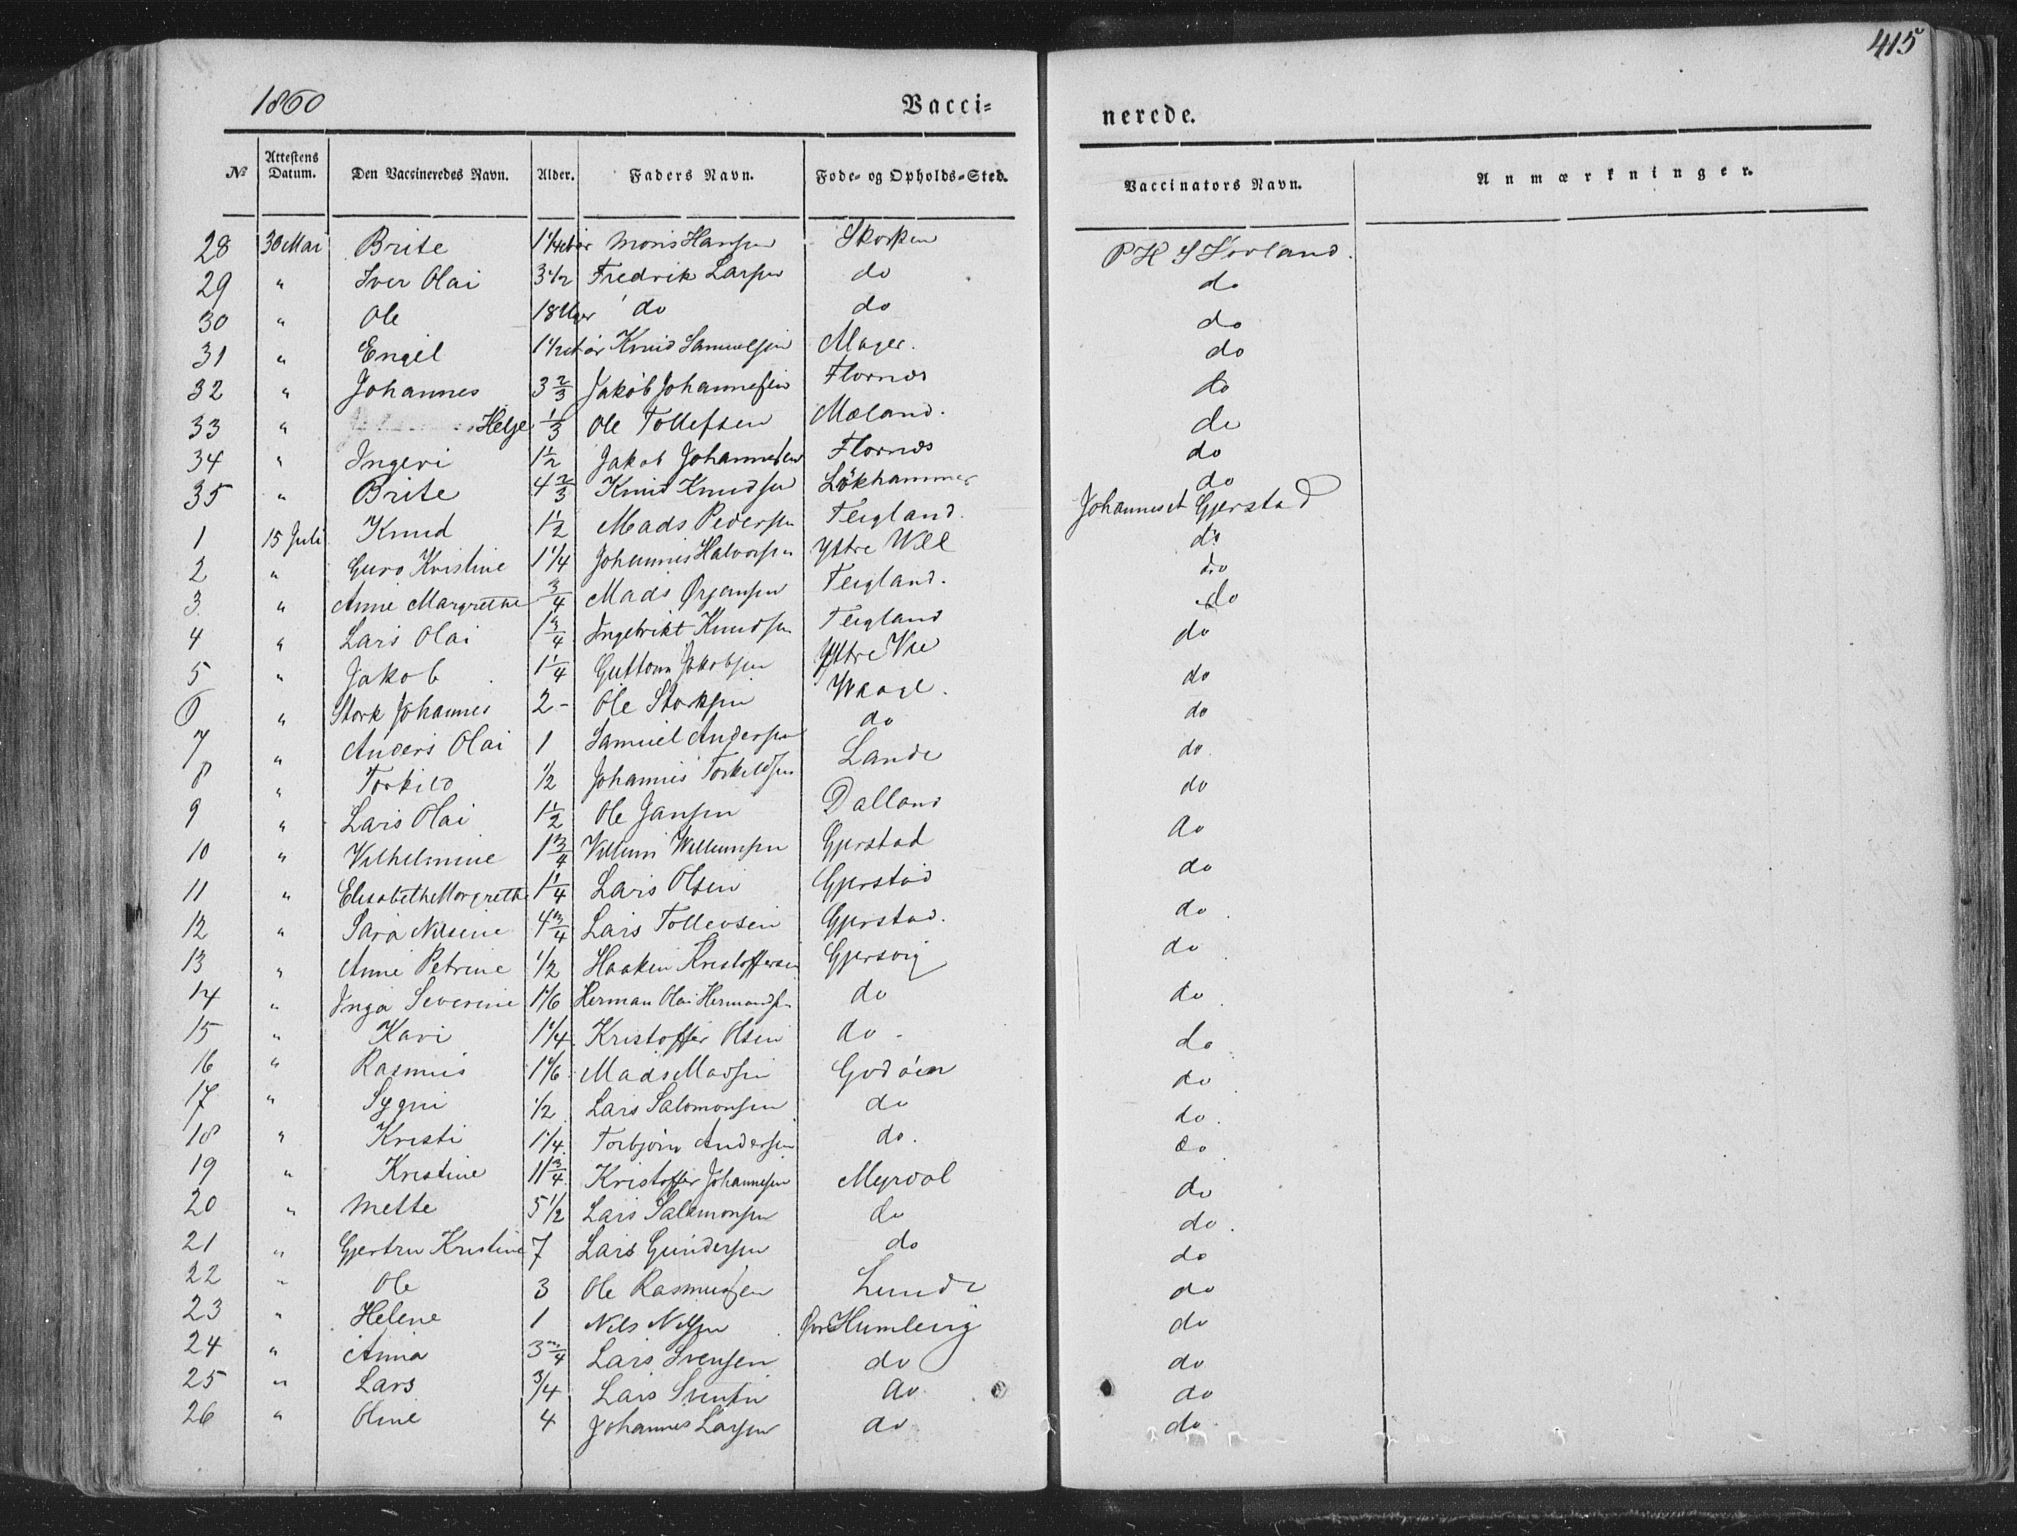 415
1860 Vacci= nerede.
№ Attestens Datum. Den Vaccineredes Navn. Alder. Faders Navn. Føde- og Opholds-Sted. Vaccinators Navn. Anmærkninger.
28 30 Mai Brite 1 1/4 Hansen Skorpen P H S
29 " Iver Olai 3 1/2 Fredrik Larsen do do
30 " Ole 18 Uger do do do
31 " Engel 1 1/2 Knud Samuelsen Mager. do
32 " Johannes 3 2/3 Jakob Johannesen Flornæs do
33 " Helje 1/3 Ole Tollefsen Mæland. do
34 " Ingeri 1 1/2 Jakob Johannesen Flornæs do
35 " Brite 4 2/3 Knud Knudsen Lökhammer do
1 15 Juli Knud 1 1/2 Mads Pedersen Teigland. Johannes Gjerstad
2 " Guro Kristine 1 1/4 Johannes Halvorsen Ystre do
3 " Anne Margrethe 3/4 Mads Ørjansen Teigland. do
4 " Lars Olai 1 3/4 Ingebrikt Knudsen Teigland do
5 " Jakob 1 1/4 Guttorm Jakobsen Ystre do
6 " Stork Johannes 2 - Ole Storksen Waage. do
7 " Anders Olai 1 Samuel Andersen do do
8 " Torkild 1/2 Johannes Torkildsen Lande do
9 " Lars Olai 1 1/2 Ole Jansen Dalland do
10 " Vilhelmine 1 3/4 Villum Willumsen Gjerstad do
11 " Elisabethe Margrethe 1 1/4 Lars Olsen Gjerstad do
12 " Sara Nilsine 4 3/4 Lars Tollevsen Gjerstad. do
13 " Anne Petrine 1/2 Haaken Kristoffersen Gjersvig do
14 " Inga Severine 1 1/6 Herman Olai Hermandsen do do
15 " Kari 1 1/4 Kristoffer Olsen do - do
16 " Rasmus 1 1/6 Mads Madsen Godøen do
17 " Sygni 1/2 Lars Salomonsen do do
18 " Kristi 1 1/4 Torbjørn Andersen do. do
19 " Kristine 11 3/4 Kristoffer Johannesen Myrdal do
20 " Mette 5 1/2 Lars Salamonsen do do
21 " Gjertru Kristine 7 Lars Gundersen do do
22 " Ole 3 Ole Rasmussen Lunde do
23 " Helene 1 Nils Nilsen Humlevig do
24 " Anna 3 3/4 Lars Svensen do do
25 " Lars 3/4 Lars Svensen do do
26 " Oline 4 Johannes Larsen do do